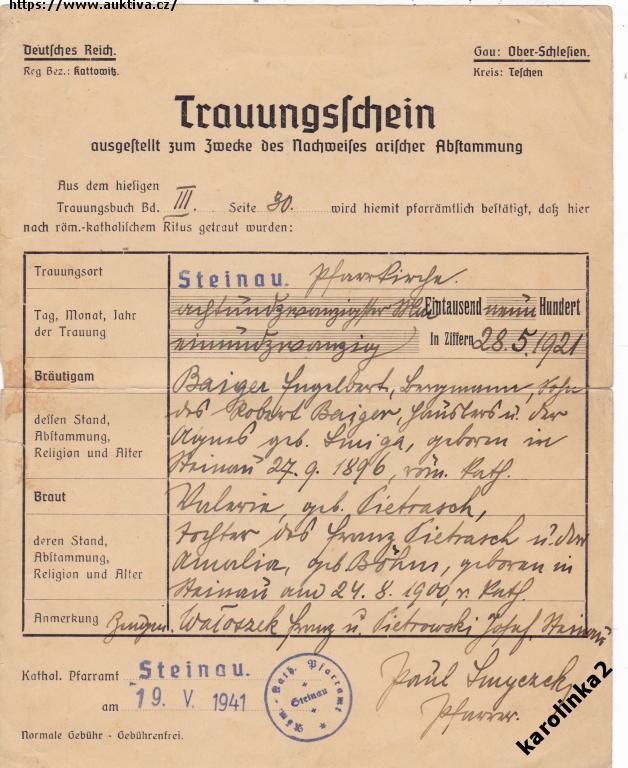 https://www.auktiva.cz/
Deutsches Reich.
Gau: Ober-Schlesien.
Reg Bez.: Kattowitz.
Kreis: Teschen
Trauungsschein
ausgestellt zum Zwecke des Nachweises arischer Abstammung
Aus dem hiesigen
Trauungsbuch Bd. III. Seite 30. wird hiemit pfarrämtlich bestätigt, daß hier
nach röm.-katholischem Ritus getraut wurden:
Trauungsort
Steinau. Pfarrkirche.
Tag, Monat, Jahr
der Trauung
achtundzwanzigster Mai Eintausend neun Hundert
einundzwanzig In Ziffern 28.5.1921
Bräutigam
dessen Stand,
Abstammung,
Religion und Alter
Baiger Engelbert, Bergmann, Sohn
des Robert Baiger, Häuslers u. der
Agnes geb. Smiga, geboren in
Steinau 27.9.1896, röm. kath.
Braut
deren Stand,
Abstammung,
Religion und Alter
Valerie, geb. Pietrasch,
Tochter des Franz Pietrasch u. der
Amalia, geb Böhm, geboren in
Steinau am 24.8.1900, r. kath.
Anmerkung Zeugen. Wałoszek Franz u. Pietrowski Josef, Steinau
Kathol. Pfarramt Steinau.
am 19. V. 1941
Röm.-Kath. Pfarramt
Steinau
Paul Smyczek,
Pfarrer.
Normale Gebühr - Gebührenfrei.
karolinka2